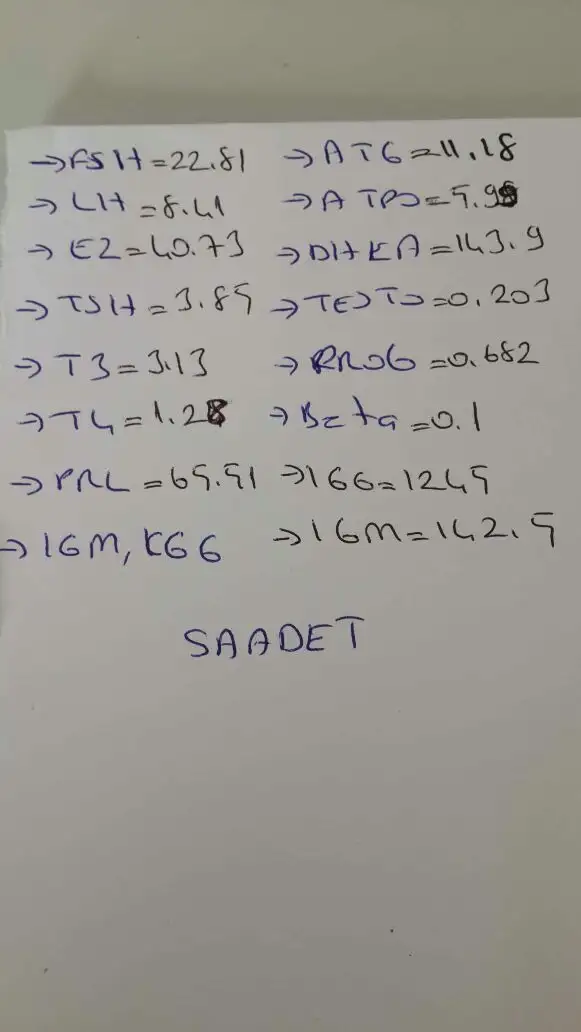 →FSH=22.81 →ATG=11.18
→LH=8.41 →ATPO=5.98
→E2=40.73 →DHEA=143.9
→TSH=3.85 →TESTO=0.203
→T3=3.13 →PROG=0.682
→T4=1.28 →Beta=0.1
→PRL=65.51 →IGG=1245
→IGM, IGG →IGM=142.5
SAADET